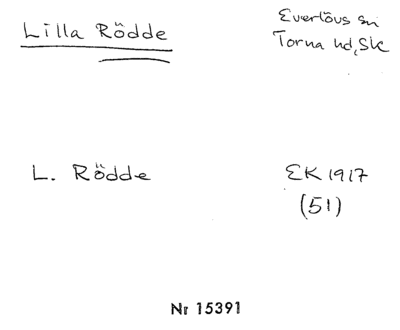 Lilla Rödde
Evertövs sn
Torna hd, Sk
L. Rödde
EK 1917
(51)
Nr 15391